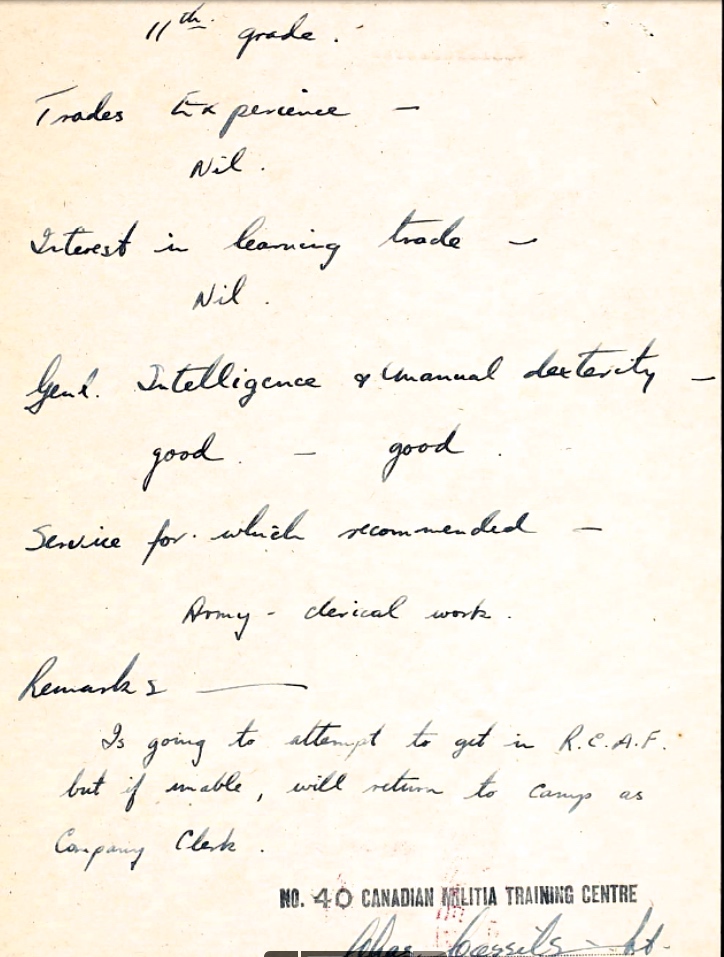 11th. grade.
Trades Experience —
Nil.
Interest in learning trade —
Nil.
Genl. Intelligence & manual dexterity —
good. — good.
Service for which recommended —
Army - clerical work.
Remarks —
Is going to attempt to get in R.C.A.F.
but if unable, will return to camp as
Company Clerk.
NO. 40 CANADIAN MILITIA TRAINING CENTRE
Chas. Cassils